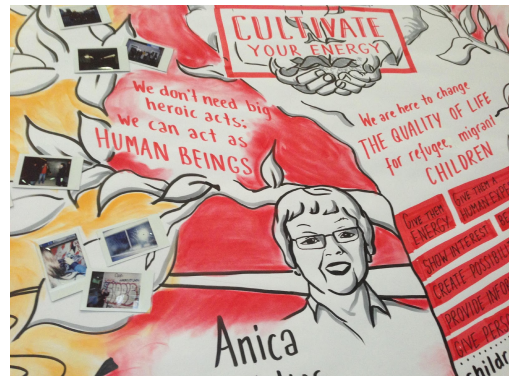 CULTIVATE
YOUR ENERGY
We don't need big
heroic acts:
we can act as
HUMAN BEINGS
We are here to change
THE QUALITY OF LIFE
for refugee, migrant
CHILDREN
GIVE THEM
ENERGY
GIVE THEM A
SHOW INTEREST
CREATE
PROVIDE
GIVE
Anica